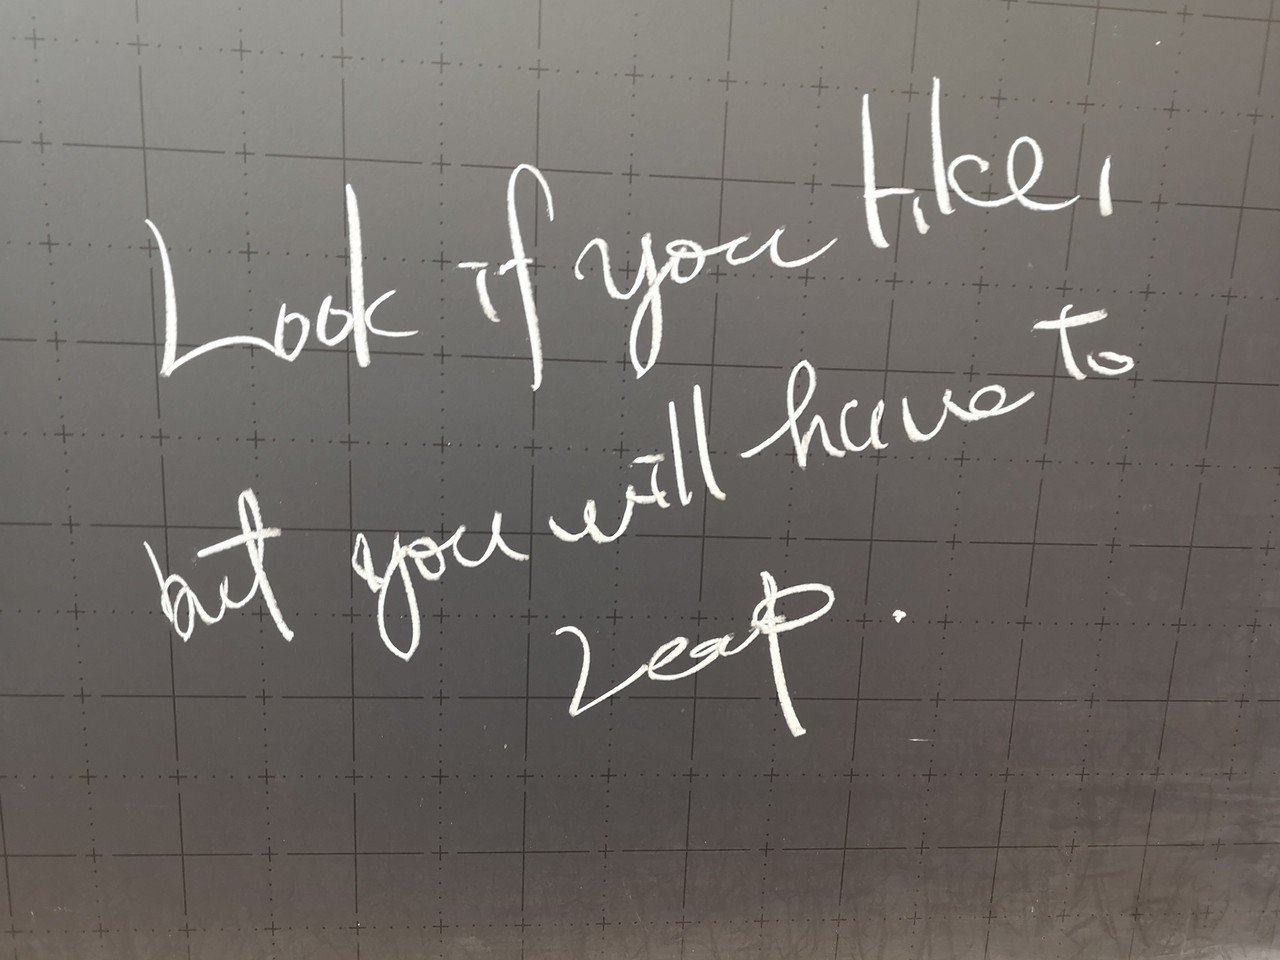 Look if you like,
but you will have to
Leap.